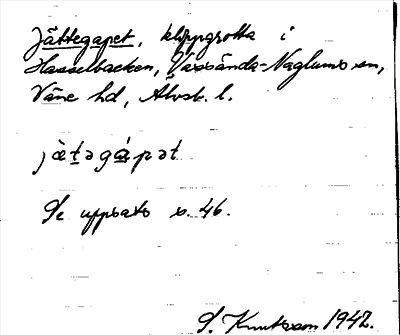 Jättegapet, klippgrotta i
Hasselbacken, Vassända-Naglums sn,
Väne hd, Älvsb. l.
jä̀təgápət
Se uppsats s. 46.
S. Knutsson 1942.